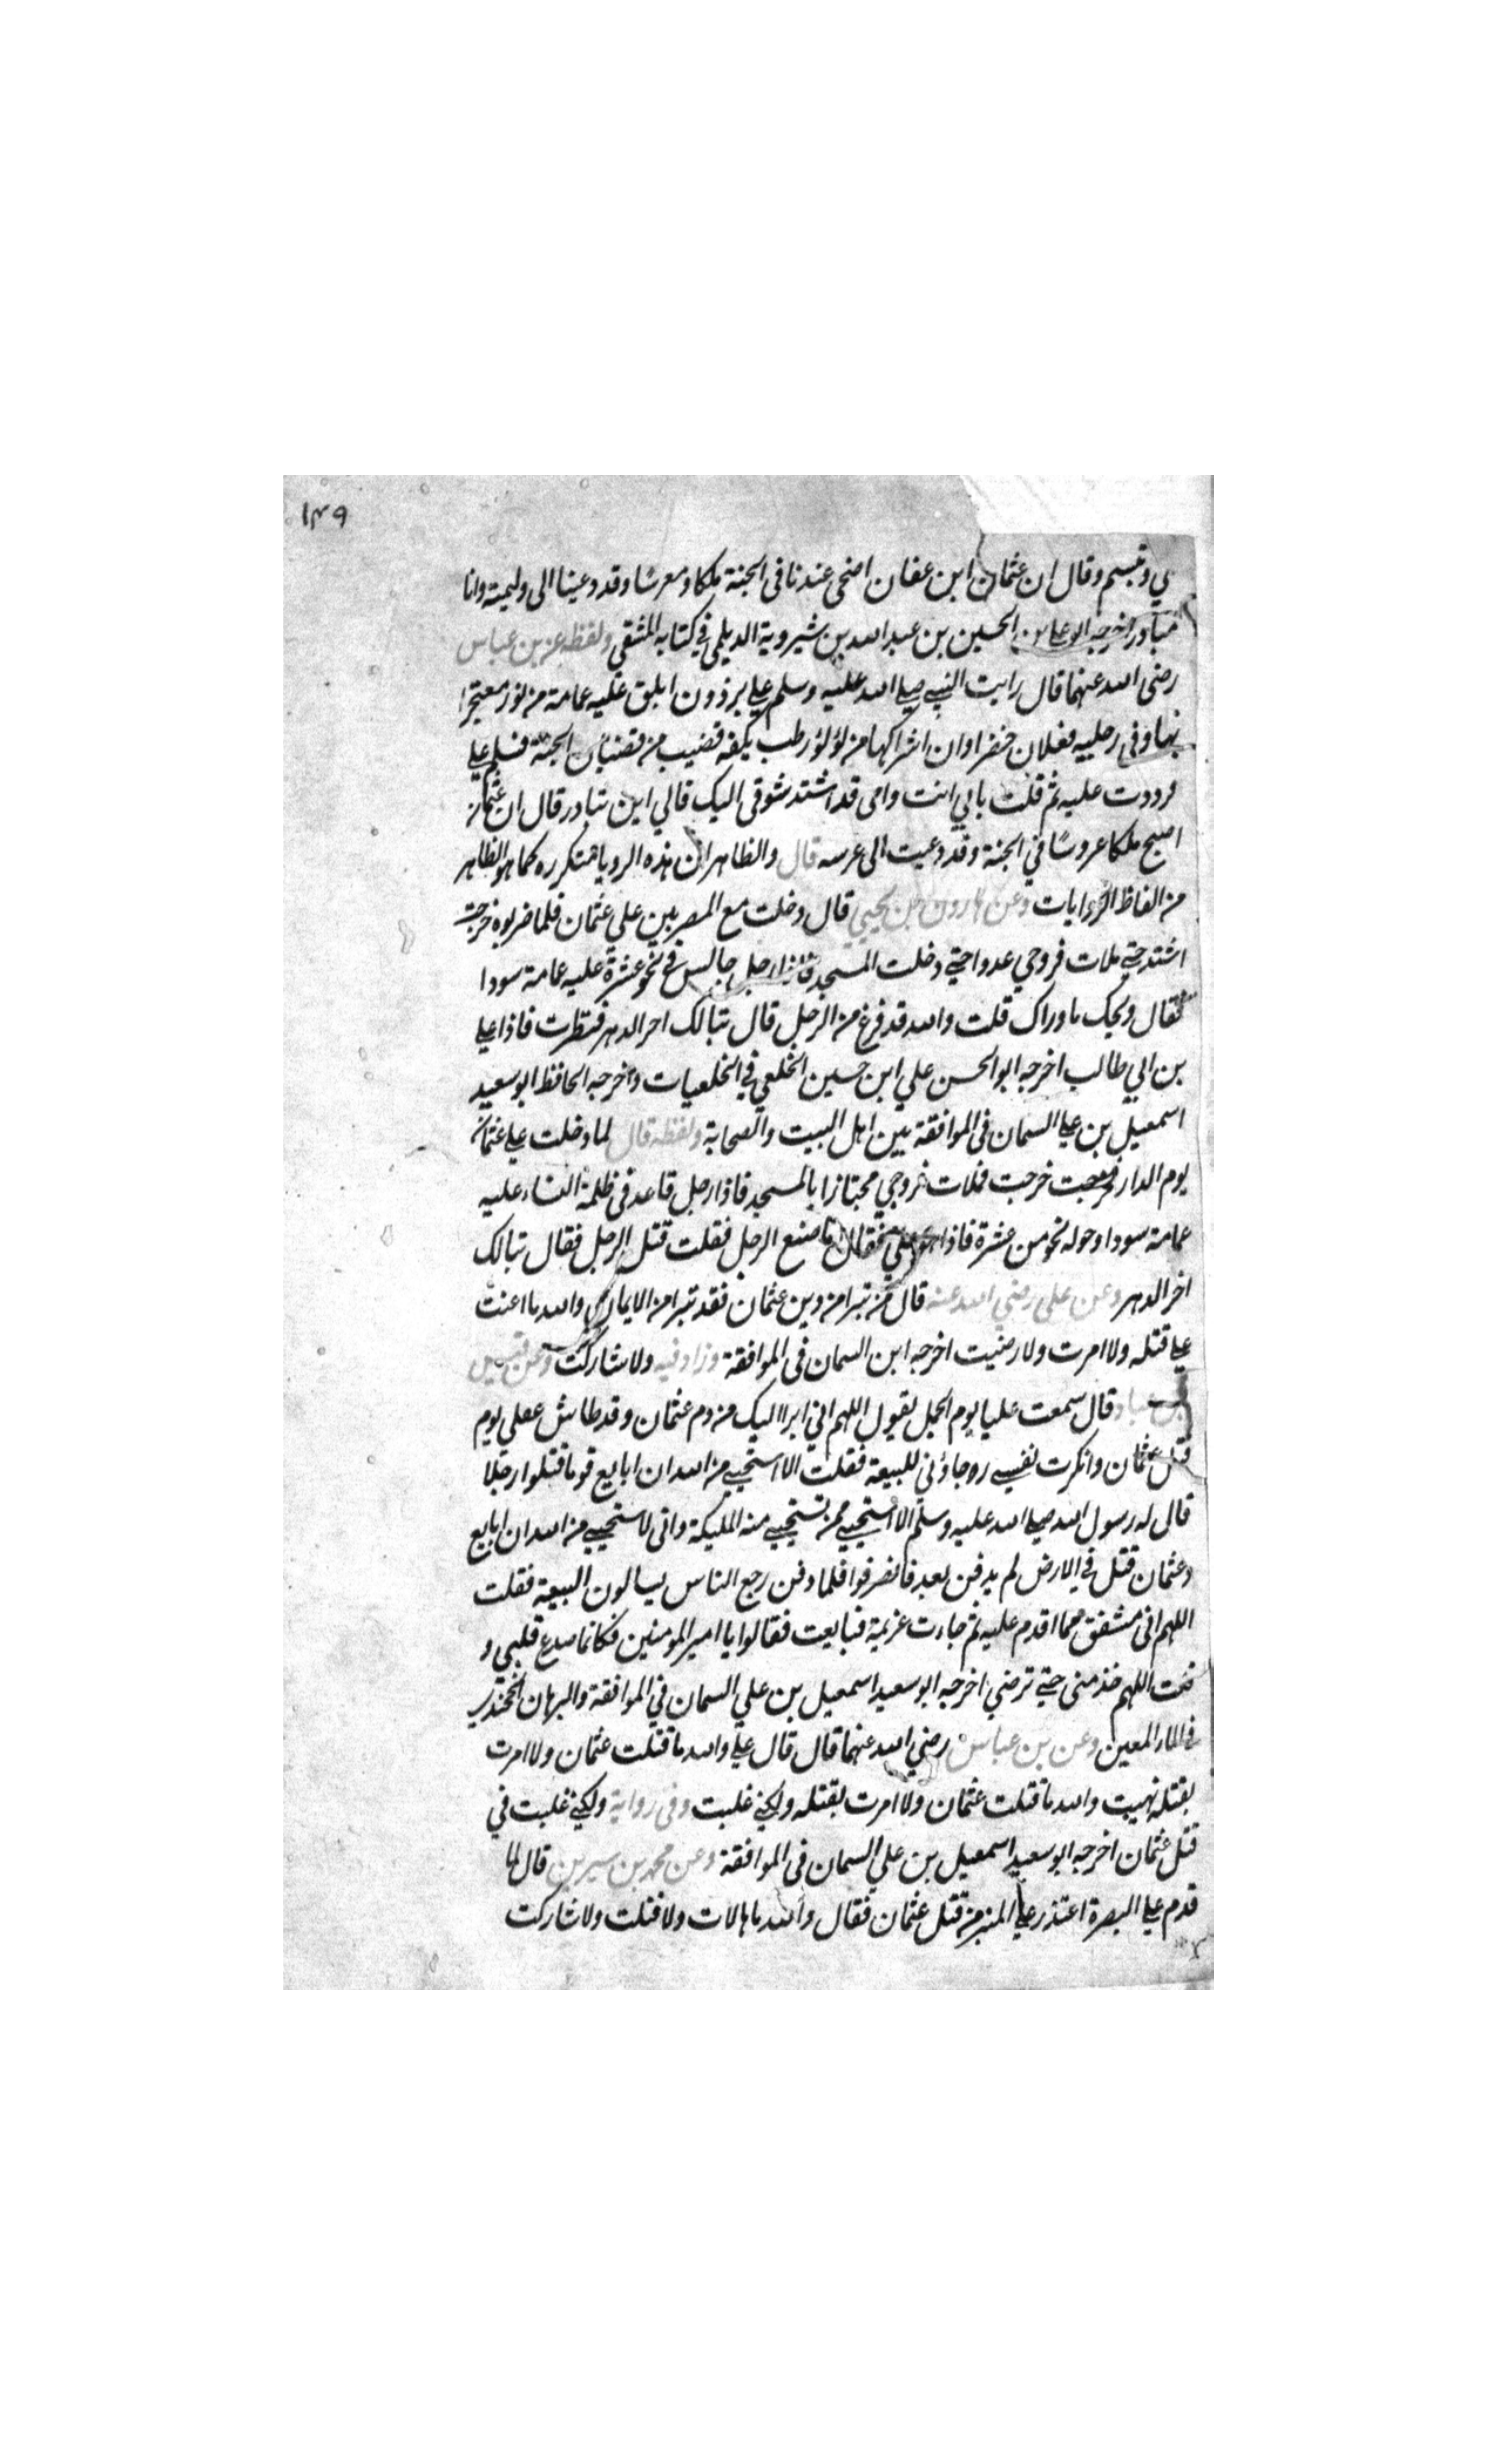 ١٣٩
لي وتبسم وقال ان عثمان ابن عفان اضحى عندنا في الجنة ملكا ومعرسا وقد دعينا الى وليمته وانا
مبادر اخرجه ابو علي بن الحسين بن عبد الله بن شيروية الديلمي في كتابه المنتقي ولفظه عن بن عباس
رضي الله عنهما قال رايت النبي صلى الله عليه وسلم على برذون ابلق عليه عمامة من نور معتجرا
بها وفي رجليه نعلان خضراوان اشراكها من لؤلؤ رطب بكفه قضيب من قضبان الجنة فسلم علي
فرددت عليه ثم قلت بابي انت وامي قد اشتد شوقي اليك فالي اين تبادر قال ان عثمان
اصبح ملكا عروسا في الجنة وقد دعيت الى عرسه قال والظاهر ان هذه الرويا متكرره كما هو الظاهر
من الفاظ الروايات وعن هارون بن يحيى قال دخلت مع المصريين على عثمان فلما ضربوه خرجت
اشتد حتى ملات فروجي عدوا حتى دخلت المسجد فاذا رجل جالس في نحو عشرة عليه عمامة سودا
فقال ويحك ما وراك قلت والله قد فرغ من الرجل قال تبا لك اخر الدهر فنظرت فاذا علي
بن ابي طالب اخرجه ابو الحسن علي ابن حسين الخلعي في الخلعيات واخرجه الحافظ ابو سعيد
اسمعيل بن علي السمان في الموافقة بين اهل البيت والصحابة ولفظه قال لما دخلت على عثمان
يوم الدار خرجت فملات فروجي مجتازا بالمسجد فاذا رجل قاعد في ظلمة النساء عليه
عمامة سودا وحوله نحو من عشرة فاذا هو علي فقال ما صنع الرجل فقلت قتل الرجل فقال تبا لك
اخر الدهر وعن علي رضي الله عنه قال من تبرا من دين عثمان فقد تبرا من الايمان والله ما اعنت
على قتله ولا امرت ولا رضيت اخرجه ابن السمان في الموافقة وزاد فيه ولا شاركت وعن قيس
بن عباد قال سمعت عليا يوم الجمل يقول اللهم اني ابرا اليك من دم عثمان وقد طاش عقلي يوم
قتل عثمان وانكرت نفسي وجاؤني للبيعة فقلت الا استحيي من الله ان ابايع قوما قتلوا رجلا
قال له رسول الله صلى الله عليه وسلم الا استحيي ممن تستحيي منه المليكة واني لاستحيي من الله ان ابايع
وعثمان قتل في الارض لم يدفن بعد فانصرفوا فلما دفن رجع الناس يسالون البيعة فقلت
اللهم اني مشفق مما اقدم عليه ثم جاءت عزيمة فبايعت فقالوا يا امير المومنين فكانما صدع قلبي و
قلت اللهم خذ مني حتى ترضي اخرجه ابو سعيد اسمعيل بن علي السمان في الموافقة والبرهان الخجندي
في الماء المعين وعن بن عباس رضي الله عنهما قال قال علي والله ما قتلت عثمان ولا امرت
بقتله نهيت والله ما قتلت عثمان ولا امرت بقتله ولكني غلبت وفي رواية ولكني غلبت في
قتل عثمان اخرجه ابو سعيد اسمعيل بن علي السمان في الموافقة وعن محمد بن سيرين قال لما
قدم علي البصرة اعتذر على المنبر من قتل عثمان فقال والله ما مالات ولا قتلت ولا شاركت